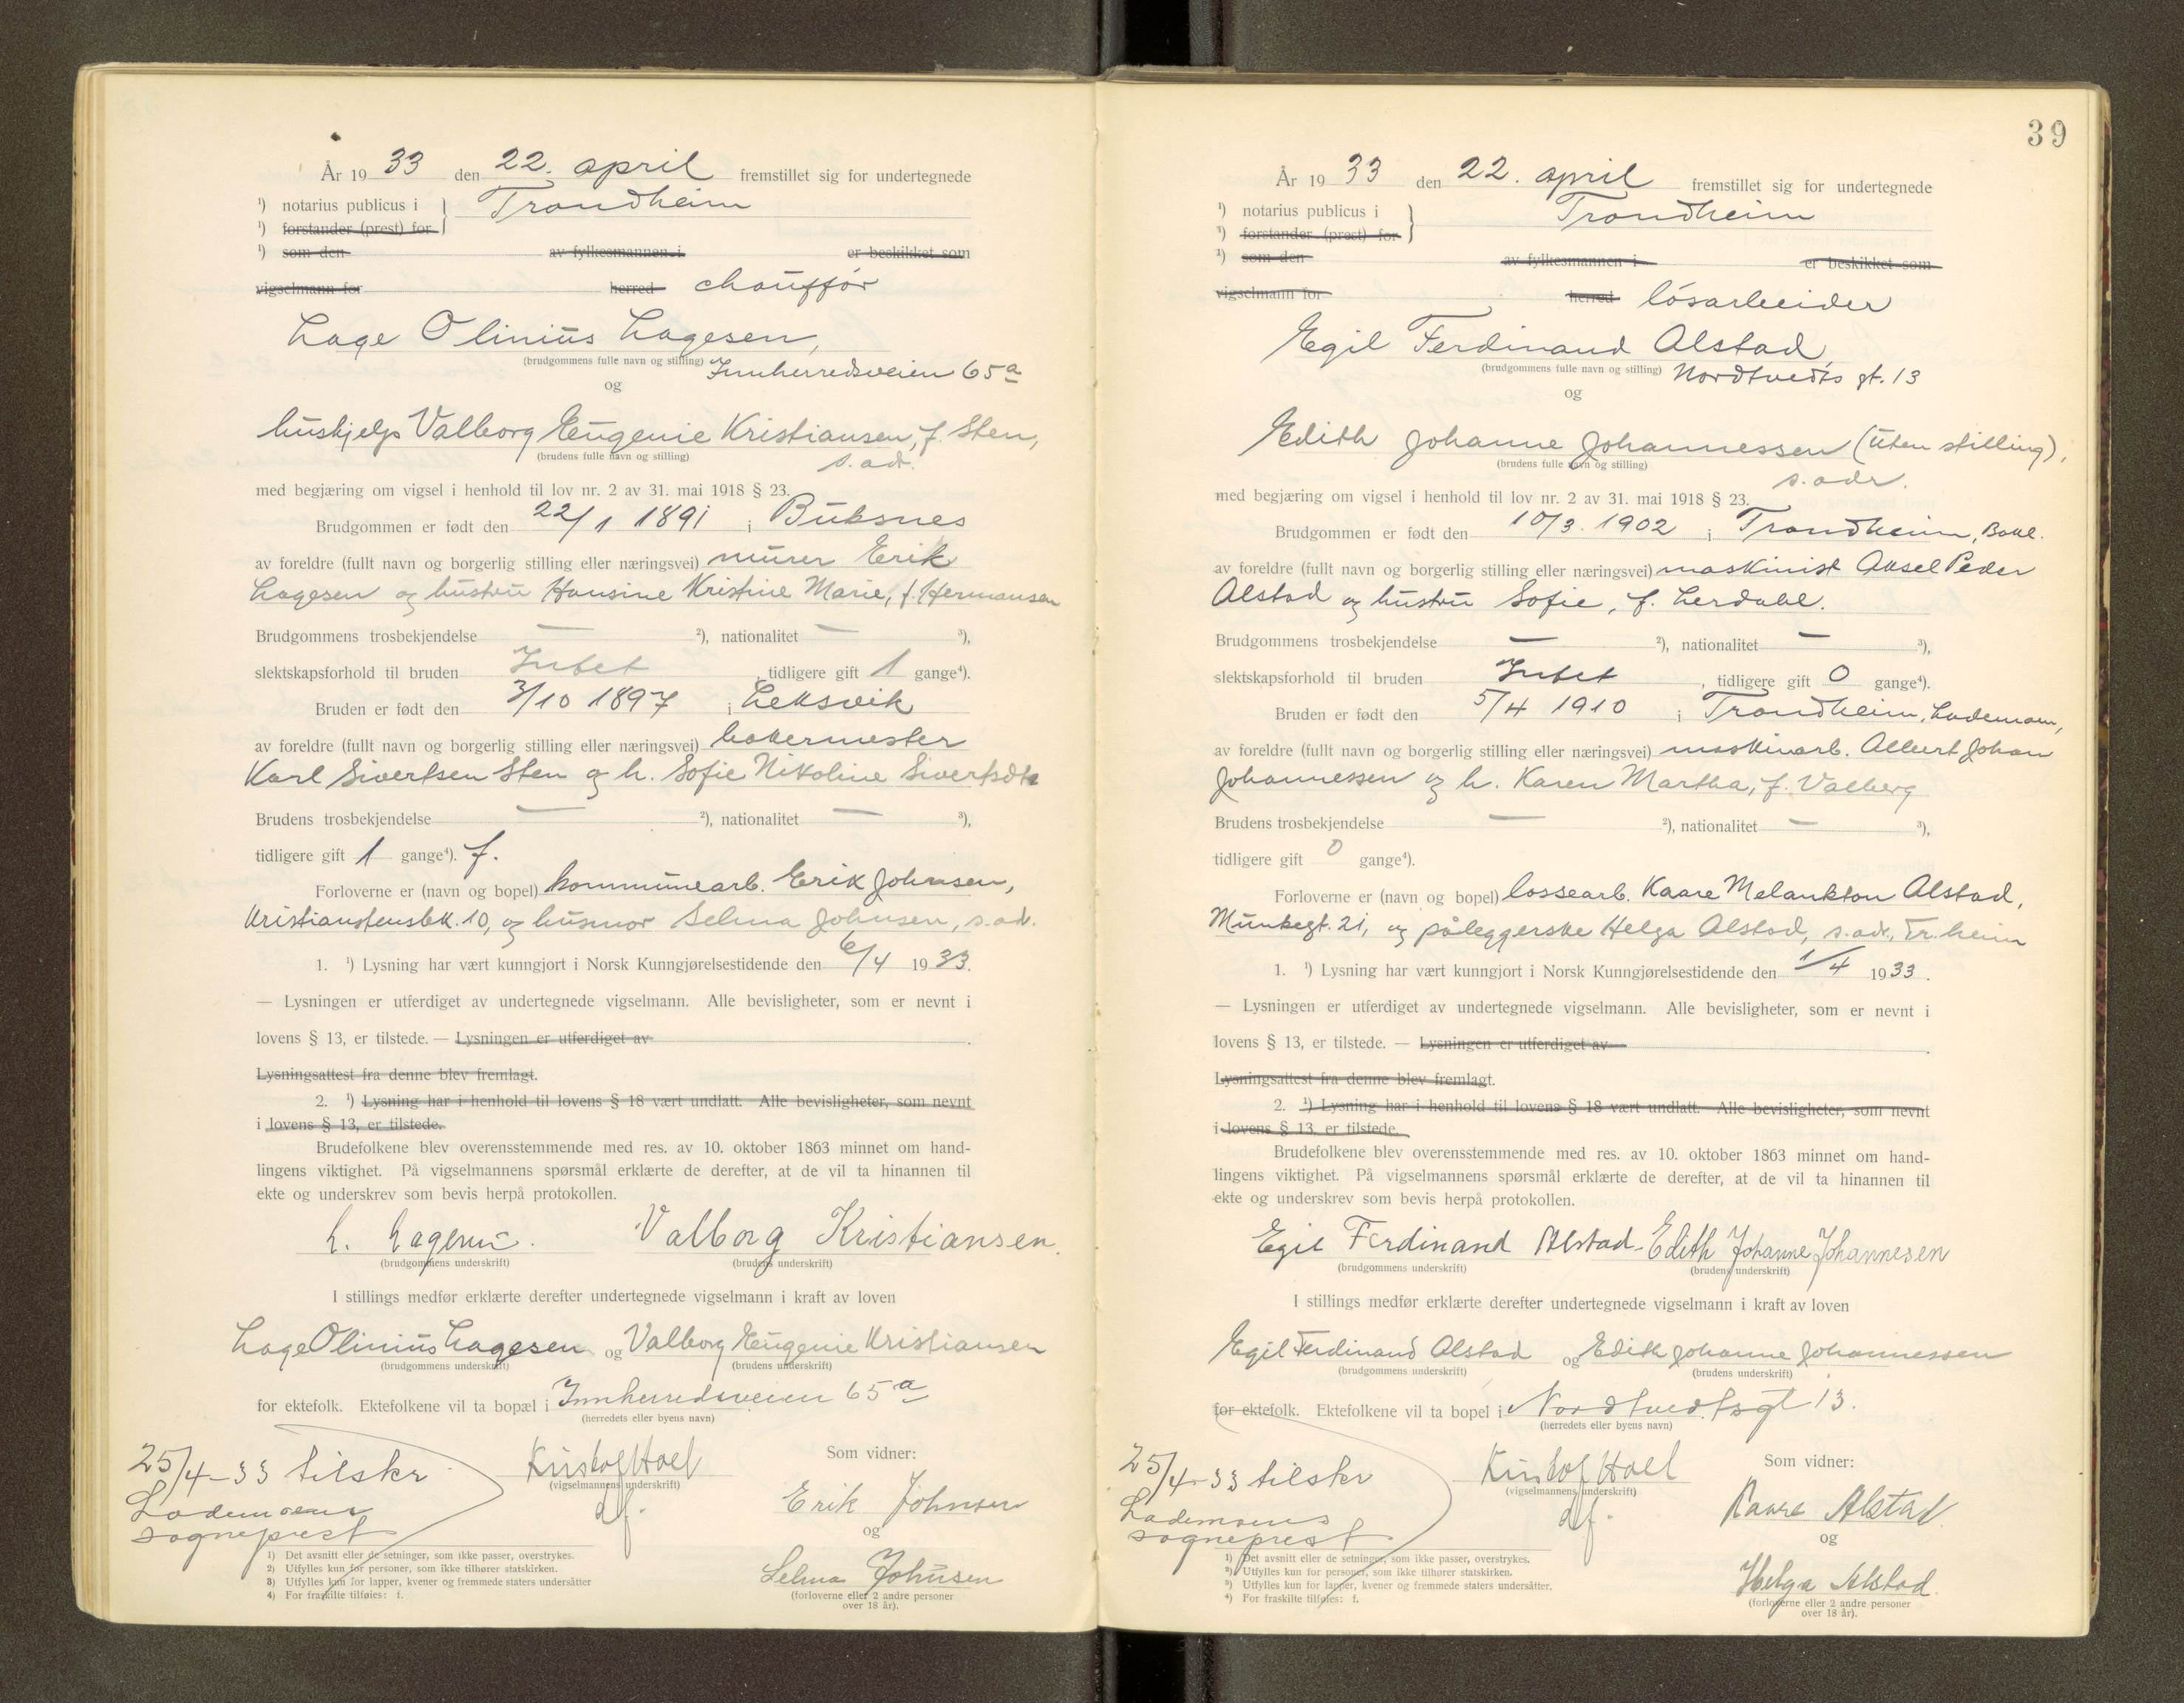 År 19 33 den 22. april fremstillet sig for undertegnede
¹) notarius publicus i } Trondheim
¹) forstander (prest) for
¹) som den av fylkesmannen i er beskikket som
vigselmann for herred chauffør
Lage Olinius Lagesen,
(brudgommens fulle navn og stilling) Innherredsveien 65a
og
huskjelp Valborg Eugenie Kristiansen, f. Sten,
(brudens fulle navn og stilling) s. ad.
med begjæring om vigsel i henhold til lov nr. 2 av 31. mai 1918 § 23.
Brudgommen er født den 22/1 1891 i Buksnes
av foreldre (fullt navn og borgerlig stilling eller næringsvei) murer Erik
Lagesen og hustru Hansine Kristine Marie, f. Hermansen
Brudgommens trosbekjendelse — ²), nationalitet — ³),
slektskapsforhold til bruden Intet, tidligere gift 1 gange⁴).
Bruden er født den 3/10 1897 i Leksvik
av foreldre (fullt navn og borgerlig stilling eller næringsvei) bakermester
Karl Sivertsen Sten og h. Sofie Nikoline Sivertsdtr
Brudens trosbekjendelse — ²), nationalitet — ³),
tidligere gift 1 gange⁴). f.
Forloverne er (navn og bopel) kommunearb. Erik Johnsen,
Kristianstensbk. 10, og husmor Selma Johnsen, s. ad.
1. ¹) Lysning har vært kunngjort i Norsk Kunngjørelsestidende den 6/4 1933.
— Lysningen er utferdiget av undertegnede vigselmann. Alle bevisligheter, som er nevnt i
lovens § 13, er tilstede. — Lysningen er utferdiget av .
Lysningsattest fra denne blev fremlagt.
2. ¹) Lysning har i henhold til lovens § 18 vært undlatt. Alle bevisligheter, som nevnt
i lovens § 13, er tilstede.
Brudefolkene blev overensstemmende med res. av 10. oktober 1863 minnet om hand-
lingens viktighet. På vigselmannens spørsmål erklærte de derefter, at de vil ta hinannen til
ekte og underskrev som bevis herpå protokollen.
L. Lagesen. Valborg Kristiansen.
(brudgommens underskrift) (brudens underskrift)
I stillings medfør erklærte derefter undertegnede vigselmann i kraft av loven
Lage Olinius Lagesen og Valborg Eugenie Kristiansen
(brudgommens underskrift) (brudens underskrift)
for ektefolk. Ektefolkene vil ta bopæl i Innherredsveien 65a
(herredets eller byens navn)
25/4-33 tilskr. Kristof Hoel Som vidner:
(vigselmannens underskrift)
Lademoens df. Erik Johnsen
sogneprest og
1) Det avsnitt eller de setninger, som ikke passer, overstrykes.
2) Utfylles kun for personer, som ikke tilhører statskirken.
3) Utfylles kun for lapper, kvener og fremmede staters undersåtter
4) For fraskilte tilføies: f.
Selma Johnsen
(forloverne eller 2 andre personer
over 18 år).
39
År 19 33 den 22. april fremstillet sig for undertegnede
¹) notarius publicus i } Trondheim
¹) forstander (prest) for
¹) som den av fylkesmannen i er beskikket som
vigselmann for herred løsarbeider
Egil Ferdinand Alstad,
(brudgommens fulle navn og stilling) Nordtvedts gt. 13
og
Edith Johanne Johannessen (uten stilling),
(brudens fulle navn og stilling) s. adr.
med begjæring om vigsel i henhold til lov nr. 2 av 31. mai 1918 § 23.
Brudgommen er født den 10/3. 1902 i Trondheim, Bakl.
av foreldre (fullt navn og borgerlig stilling eller næringsvei) maskinist Aksel Peder
Alstad og hustru Sofie, f. Lerdahl.
Brudgommens trosbekjendelse — ²), nationalitet — ³),
slektskapsforhold til bruden Intet, tidligere gift 0 gange⁴).
Bruden er født den 5/4 1910 i Trondheim, Lademoen,
av foreldre (fullt navn og borgerlig stilling eller næringsvei) maskinarb. Albert Johan
Johannessen og h. Karen Martha, f. Valberg
Brudens trosbekjendelse — ²), nationalitet — ³),
tidligere gift 0 gange⁴).
Forloverne er (navn og bopel) lossearb. Kaare Melankton Alstad,
Munkegt. 21, og påleggerske Helga Alstad, s. ad., Tr.heim
1. ¹) Lysning har vært kunngjort i Norsk Kunngjørelsestidende den 1/4 1933.
— Lysningen er utferdiget av undertegnede vigselmann. Alle bevisligheter, som er nevnt i
lovens § 13, er tilstede. — Lysningen er utferdiget av .
Lysningsattest fra denne blev fremlagt.
2. ¹) Lysning har i henhold til lovens § 18 vært undlatt. Alle bevisligheter, som nevnt
i lovens § 13, er tilstede.
Brudefolkene blev overensstemmende med res. av 10. oktober 1863 minnet om hand-
lingens viktighet. På vigselmannens spørsmål erklærte de derefter, at de vil ta hinannen til
ekte og underskrev som bevis herpå protokollen.
Egil Ferdinand Alstad - Edith Johanne Johannesen
(brudgommens underskrift) (brudens underskrift)
I stillings medfør erklærte derefter undertegnede vigselmann i kraft av loven
Egil Ferdinand Alstad og Edith Johanne Johannessen
(brudgommens underskrift) (brudens underskrift)
for ektefolk. Ektefolkene vil ta bopel i Nordtvedtsgt 13.
(herredets eller byens navn)
25/4-33 tilskr Kristof Hoel Som vidner:
(vigselmannens underskrift)
Lademoens df. Kaare Alstad.
sogneprest og
1) Det avsnitt eller de setninger, som ikke passer, overstrykes.
2) Utfylles kun for personer, som ikke tilhører statskirken.
3) Utfylles kun for lapper, kvener og fremmede staters undersåtter.
4) For fraskilte tilføies: f.
Helga Alstad.
(forloverne eller 2 andre personer
over 18 år).